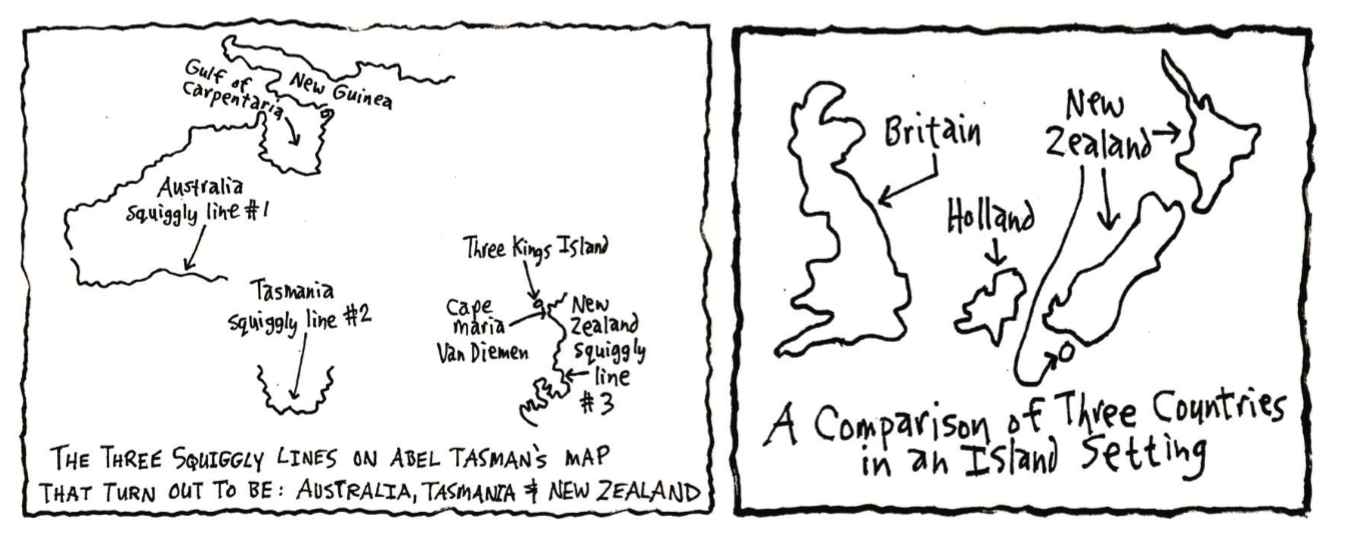 Gulf of
Carpentaria
New Guinea
Australia
squiggly line #1
Tasmania
squiggly line #2
Three Kings Island
Cape
maria
Van Diemen
New
Zealand
squiggly
line
#3
THE THREE SQUIGGLY LINES ON ABEL TASMAN'S MAP
THAT TURN OUT TO BE: AUSTRALIA, TASMANIA & NEW ZEALAND
Britain
New
Zealand
Holland
A Comparison of Three Countries
in an Island Setting